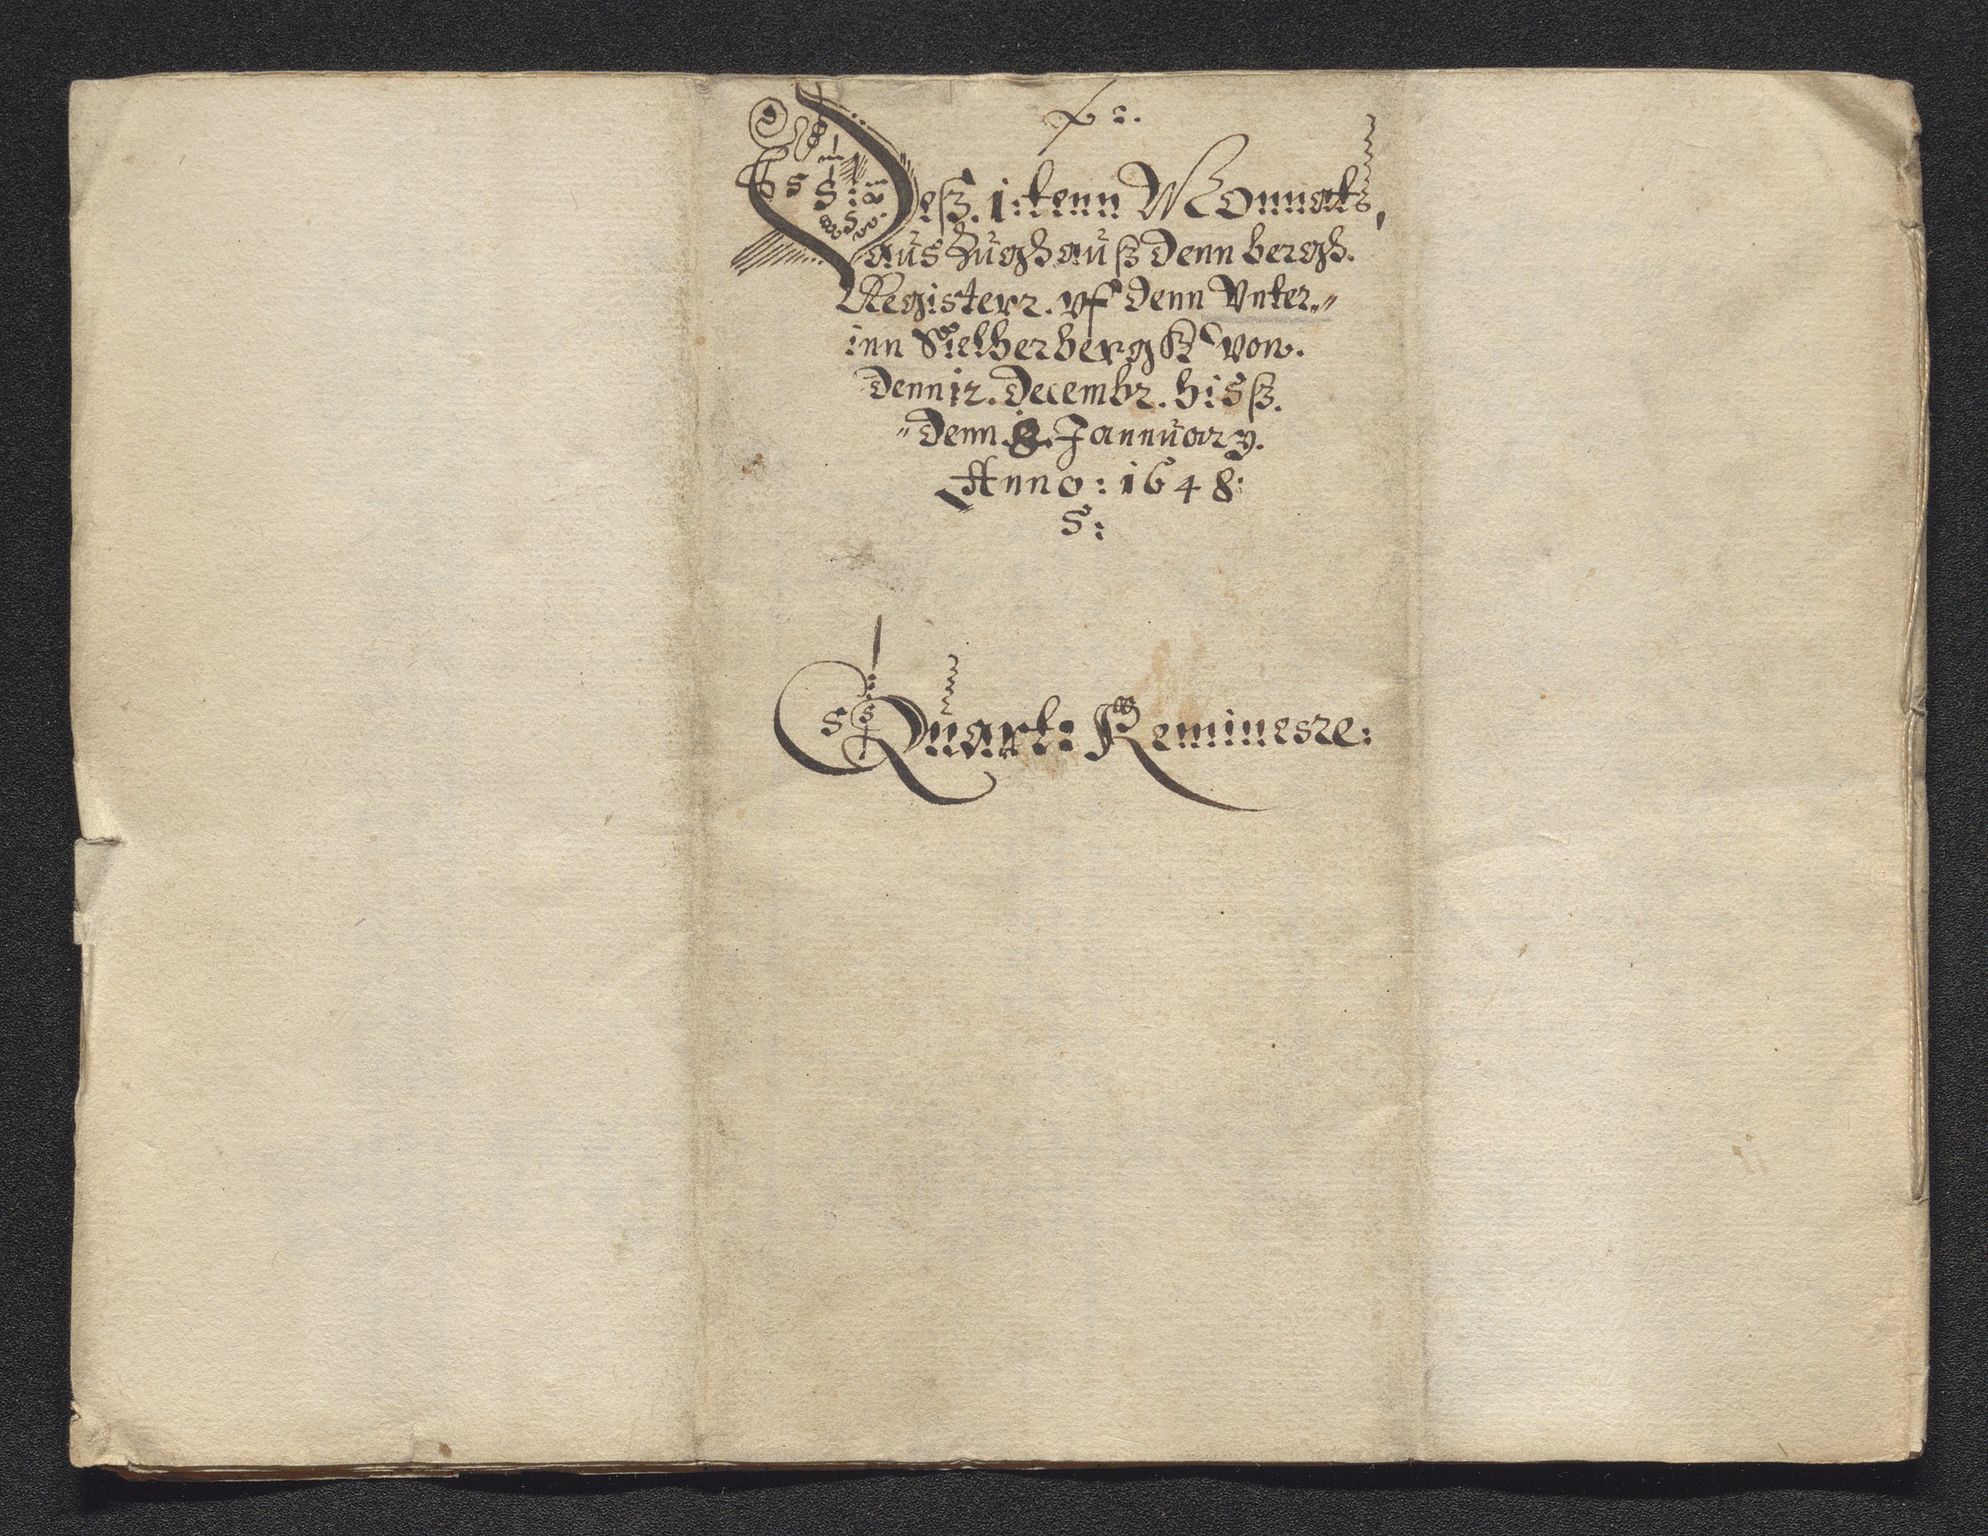 Deß. 1:tenn Monnats,
aus Zugh auß denn bergh.
Registerr. vf denn Vnter„
inn Sielberbergk von.
denn 12. Decembr. biß.
„denn 8. Jannuary.
Anno: 1648:
S:
Quart: Reminesre: